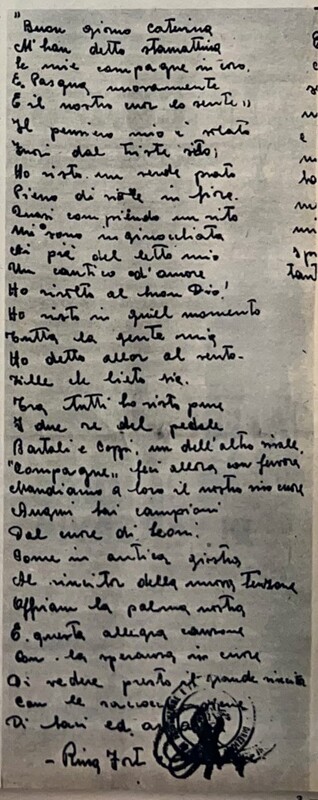 "Buon giorno Caterina
M'han detto stamattina
le mie compagne in coro,
È Pasqua nuovamente
E il nostro cuor lo sente"
Il pensiero mio è volato
Fuori dal triste sito;
Ho visto un verde prato
Pieno di viole in fiore.
Quasi compiendo un rito
Mi sono inginocchiata
Ai piè del letto mio
Un cantico d'amore
Ho rivolto al buon Dio!
Ho visto in quel momento
Tutta la gente mia
Ho detto allor al vento
che lieto sia.
Tra tutti ho visto pure
I due re del pedale
Bartali e Coppi, un dell'altro rivale,
"Compagne" feci allora con fervore
Mandiamo a loro il nostro cuore
Auguri bai campioni
Dal cuore di leon.
Come in antica giostra
Al vincitor della nuova tenzone
Offriam la palma nostra
E questa allegra canzone
Con la speranza in cuore
Di veder presto il grande
Con le
Di baci ed
- Rina Fort